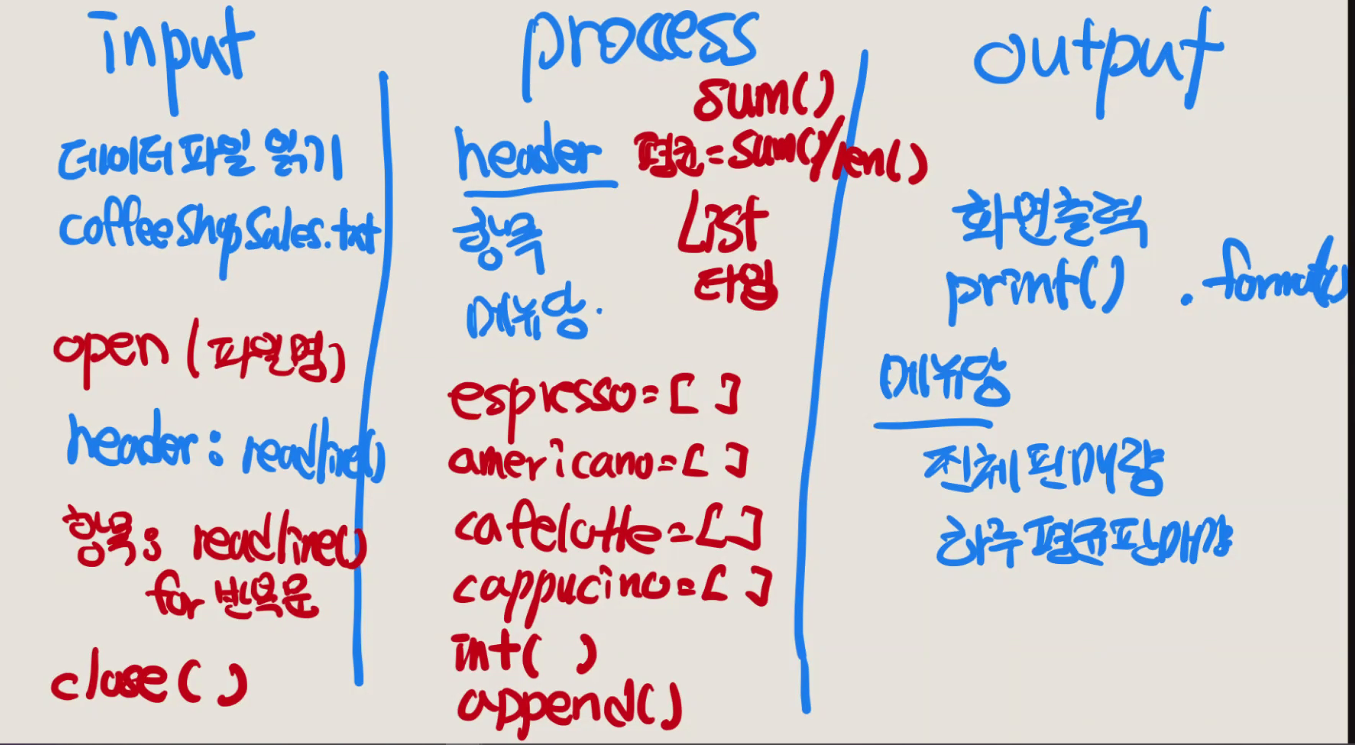 input
데이터 파일 읽기
coffeeShopSales.txt
open (파일명)
header : readline()
항목 : readline()
for 반복문
close ( )
process
sum()
header
평균=sum()/len()
항목
List
타입
메뉴당.
espresso=[ ]
americano=[ ]
cafelatte=[ ]
cappucino=[ ]
int( )
append()
output
화면출력
print() .format()
메뉴당
전체판매량
하루평균판매량